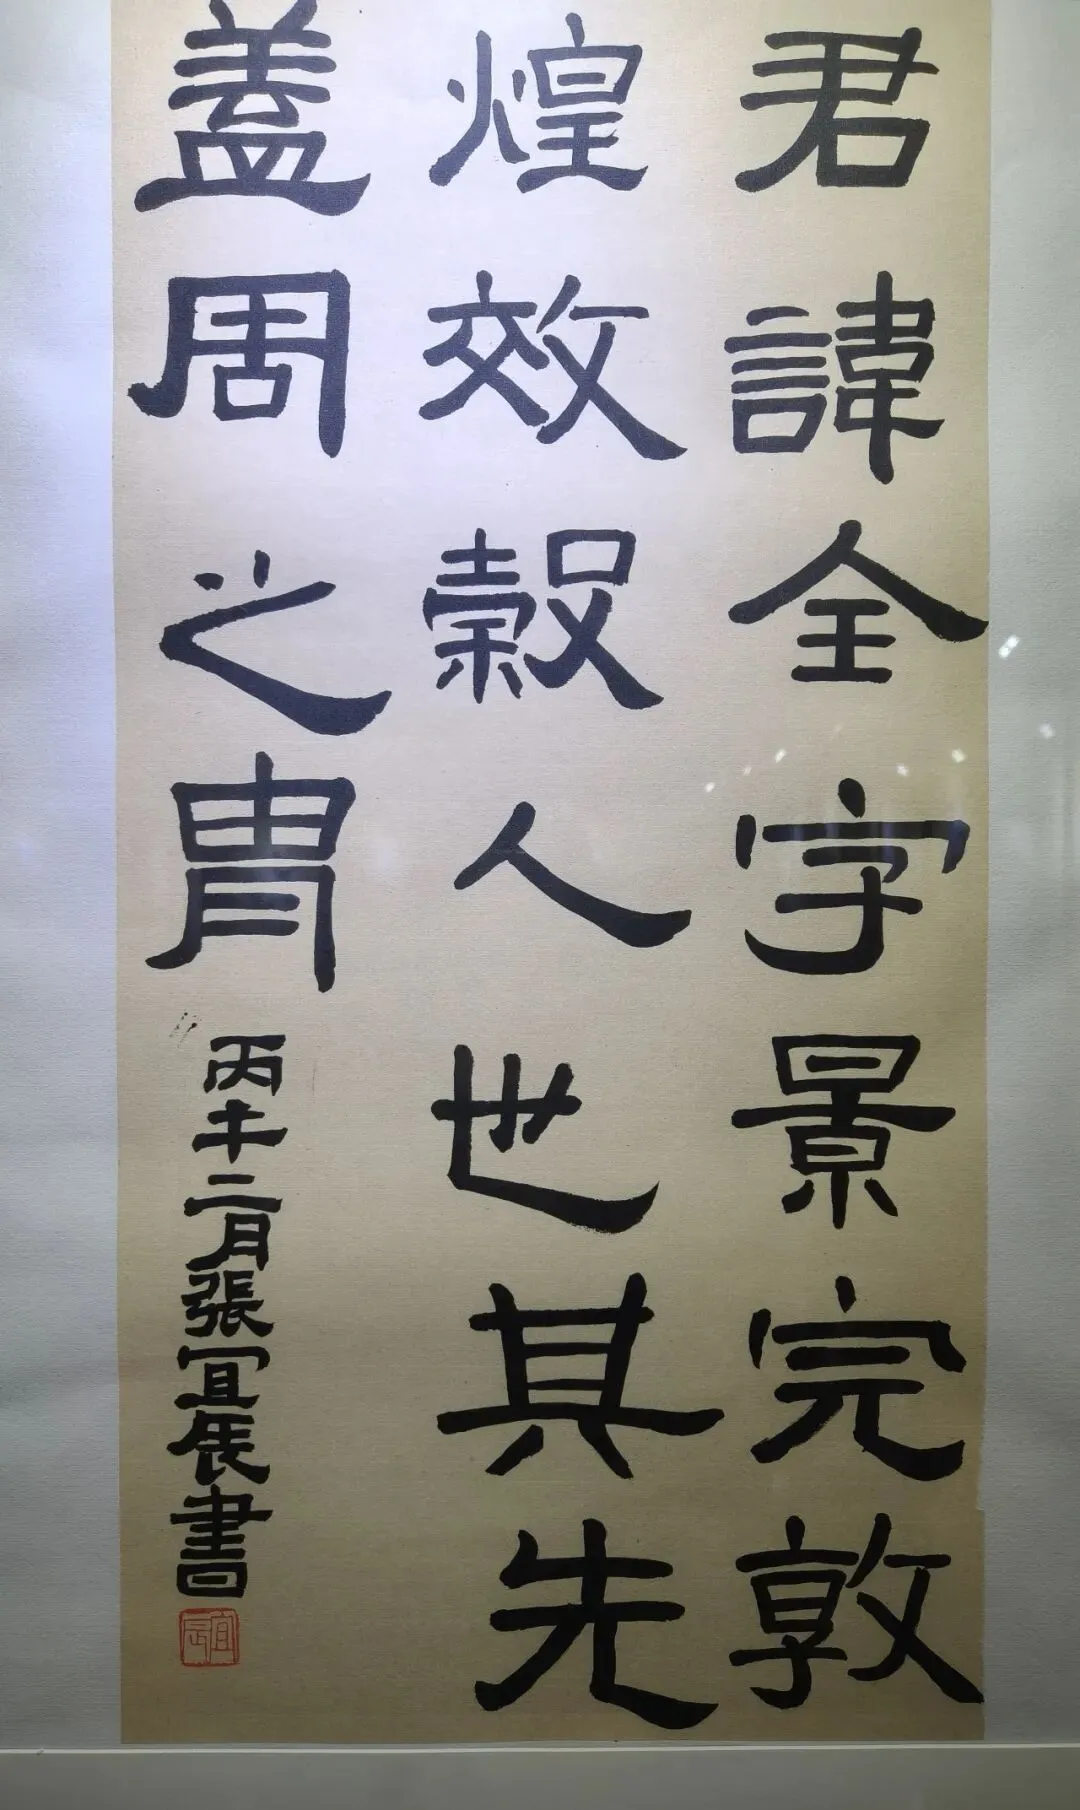 君諱全字景完敦
煌效穀人也其先
蓋周之胄
丙午二月張宜展書